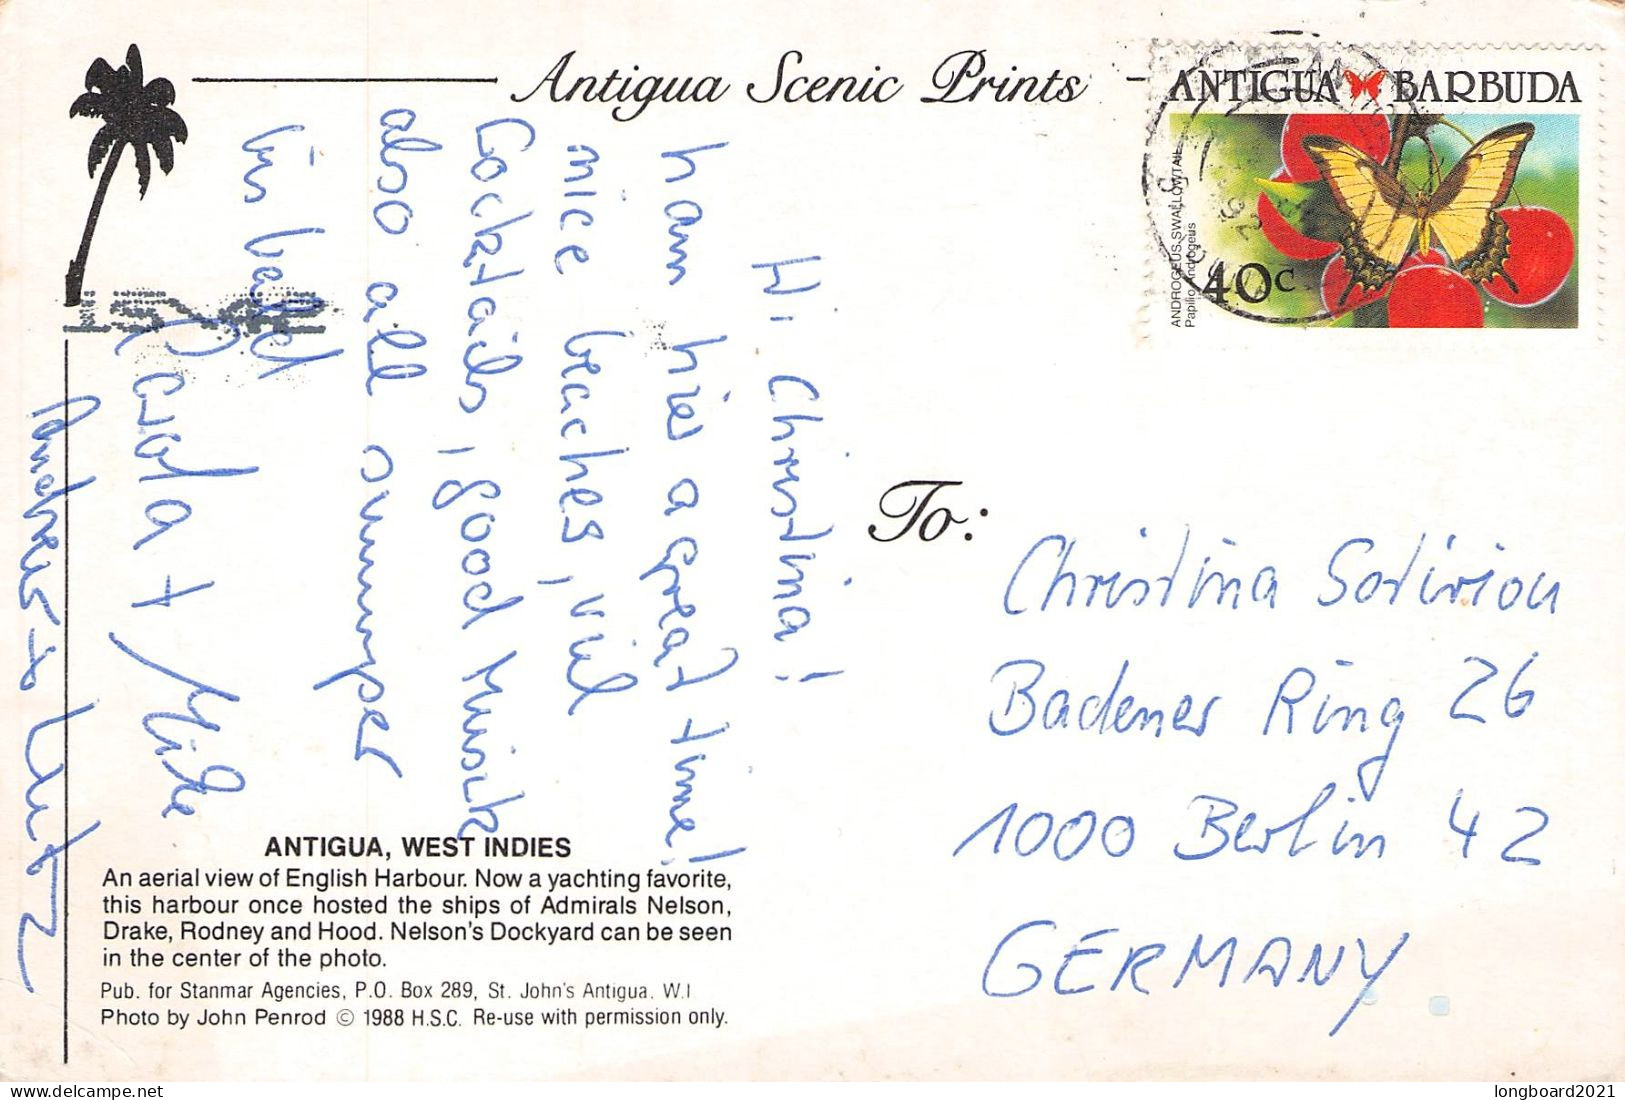 Antigua Scenic Prints
ANTIGUA BARBUDA
ANDROGEUS SWALLOWTAIL
Papilio Androgeus
40c
Hi Christina!
ham hier a great time!
nice beaches, viel
Cocktails, good Musik
also all summper
bis bald
+ Mike
Andreas + Lutz
To:
Christina Sotiriou
Badener Ring 26
1000 Berlin 42
GERMANY
ANTIGUA, WEST INDIES
An aerial view of English Harbour. Now a yachting favorite,
this harbour once hosted the ships of Admirals Nelson,
Drake, Rodney and Hood. Nelson's Dockyard can be seen
in the center of the photo.
Pub. for Stanmar Agencies, P.O. Box 289, St. John's Antigua. W.I
Photo by John Penrod © 1988 H.S.C. Re-use with permission only.
longboard2021